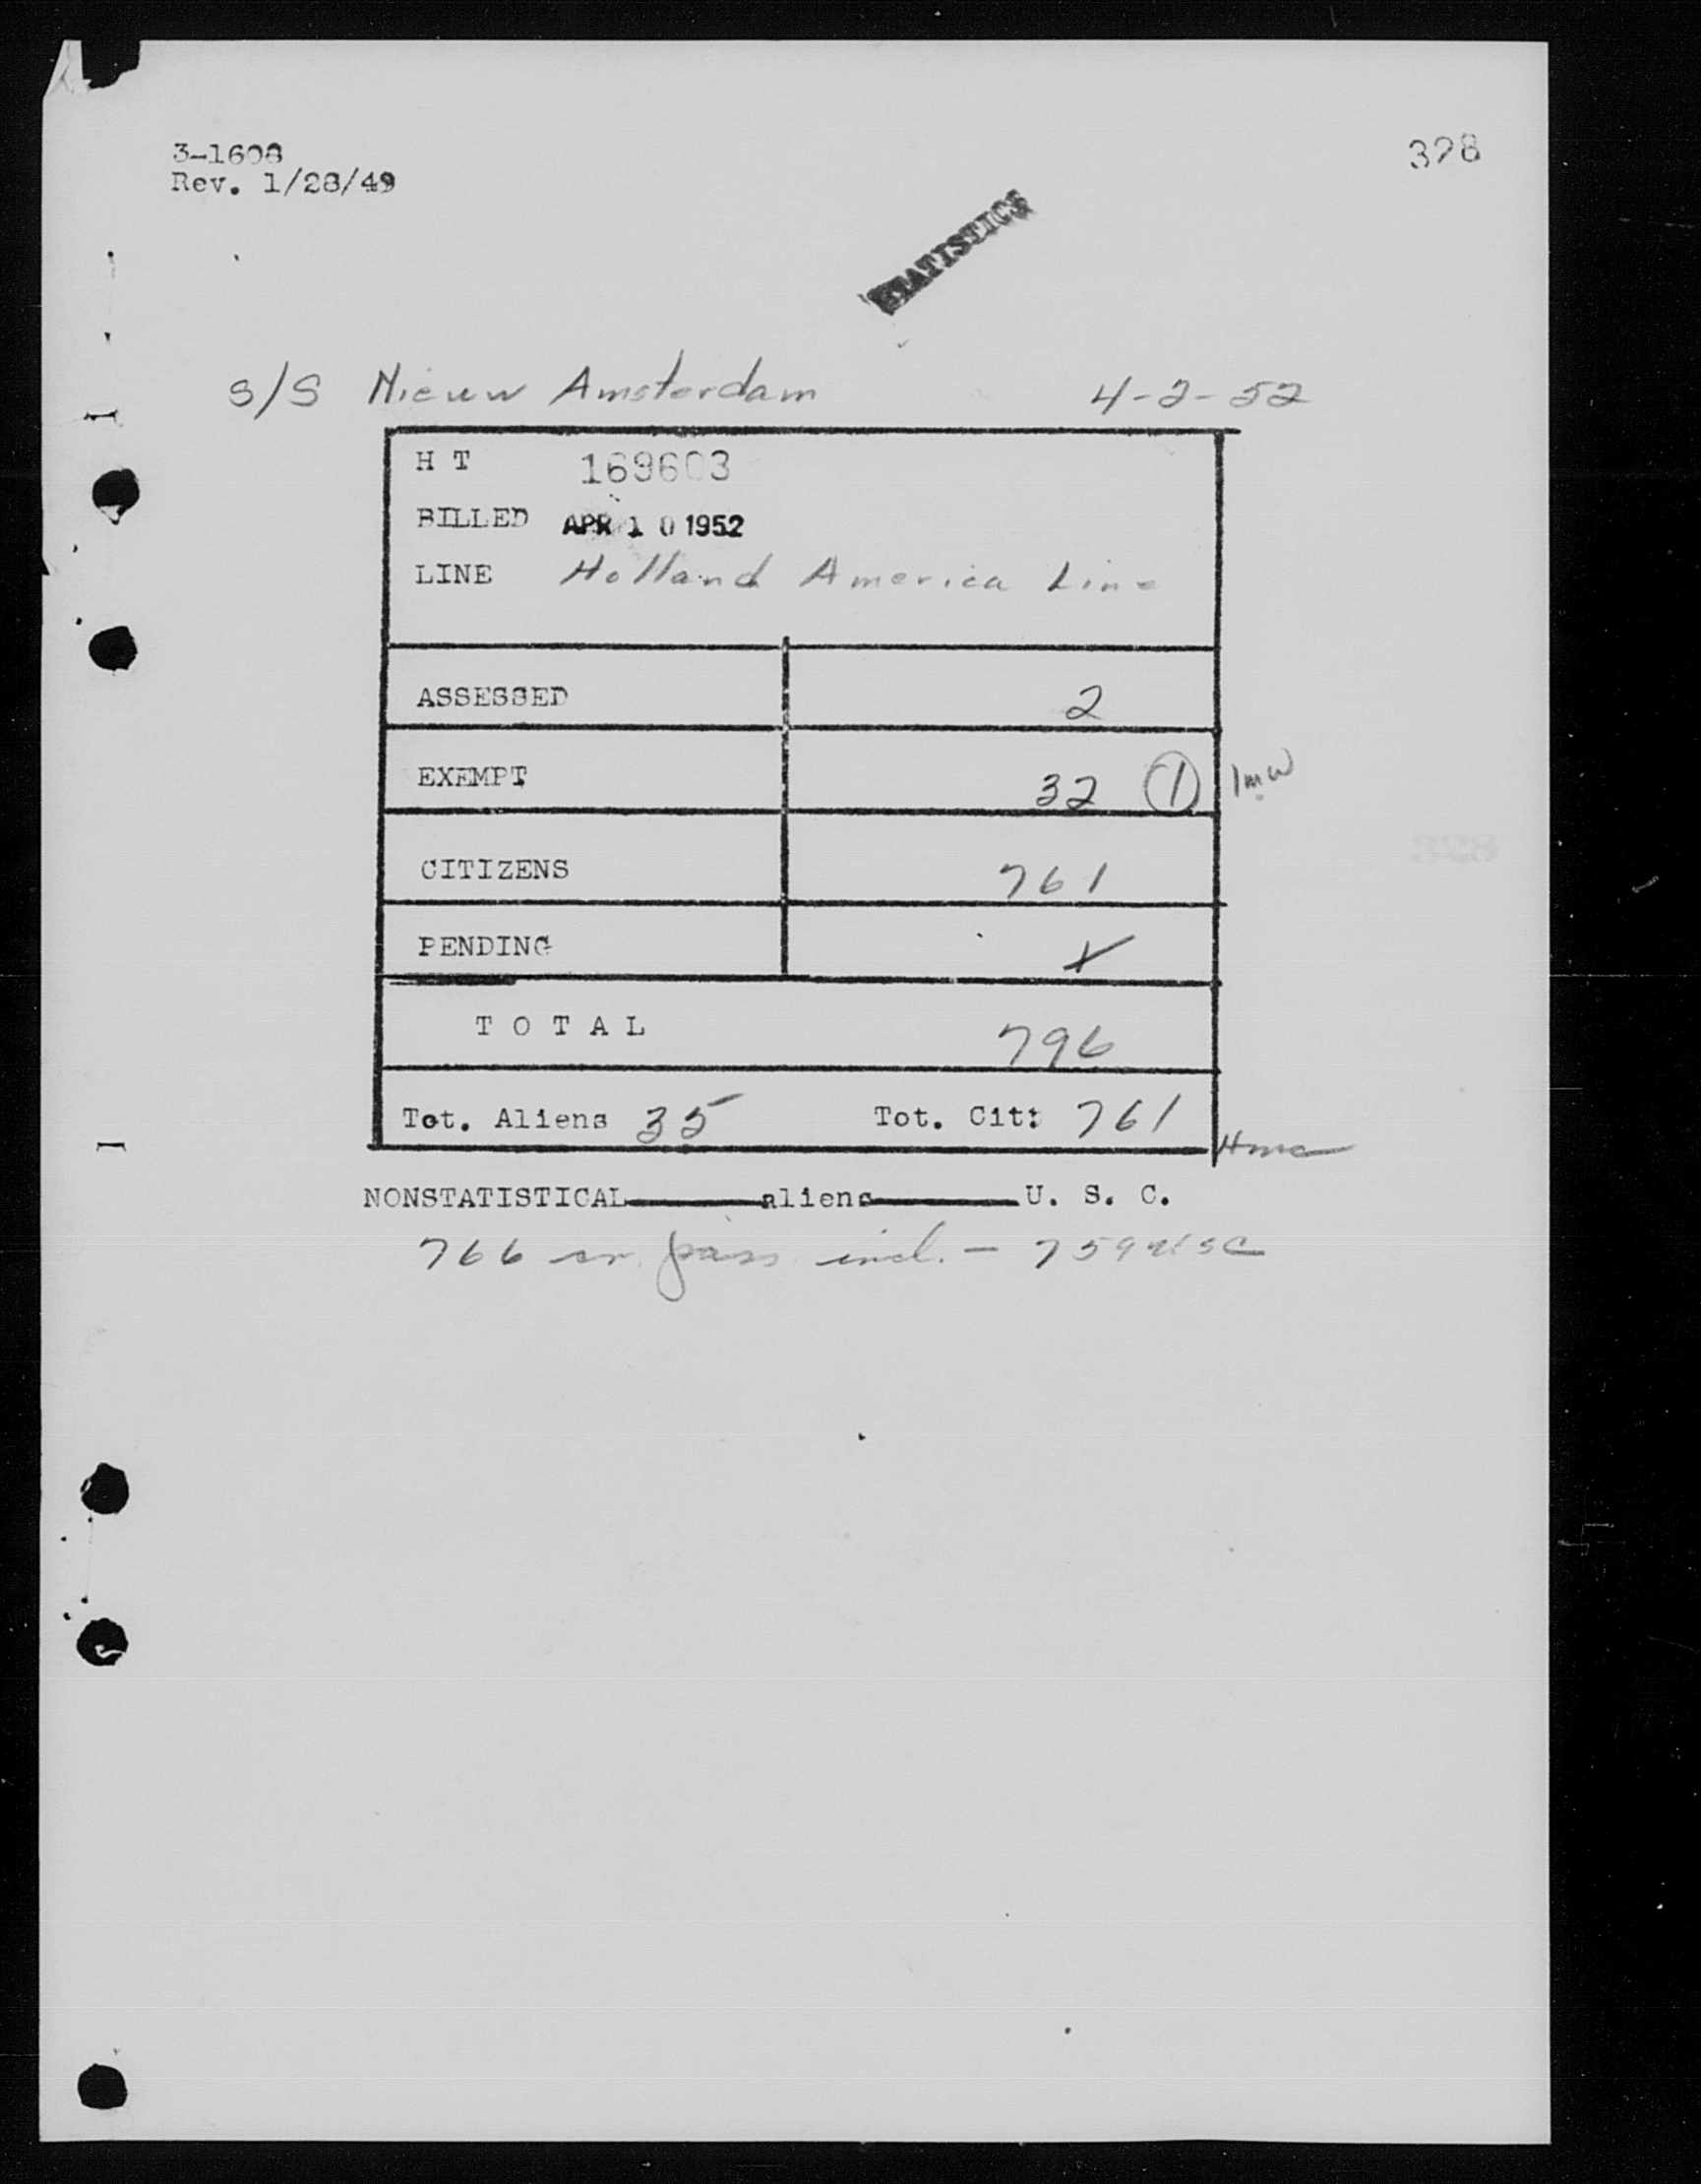 3-1608
Rev. 1/28/49
328
STATISTICS
S/S Nieuw Amsterdam 4-2-52
H T 169603
BILLED APR 10 1952
LINE Holland America Line
ASSESSED 2
EXEMPT 32 1 1mw
CITIZENS 761
PENDING X
T O T A L 796
Tot. Aliens 35 Tot. Cit: 761
NONSTATISTICAL aliens U. S. C.
766 pass incl. - 759 USC